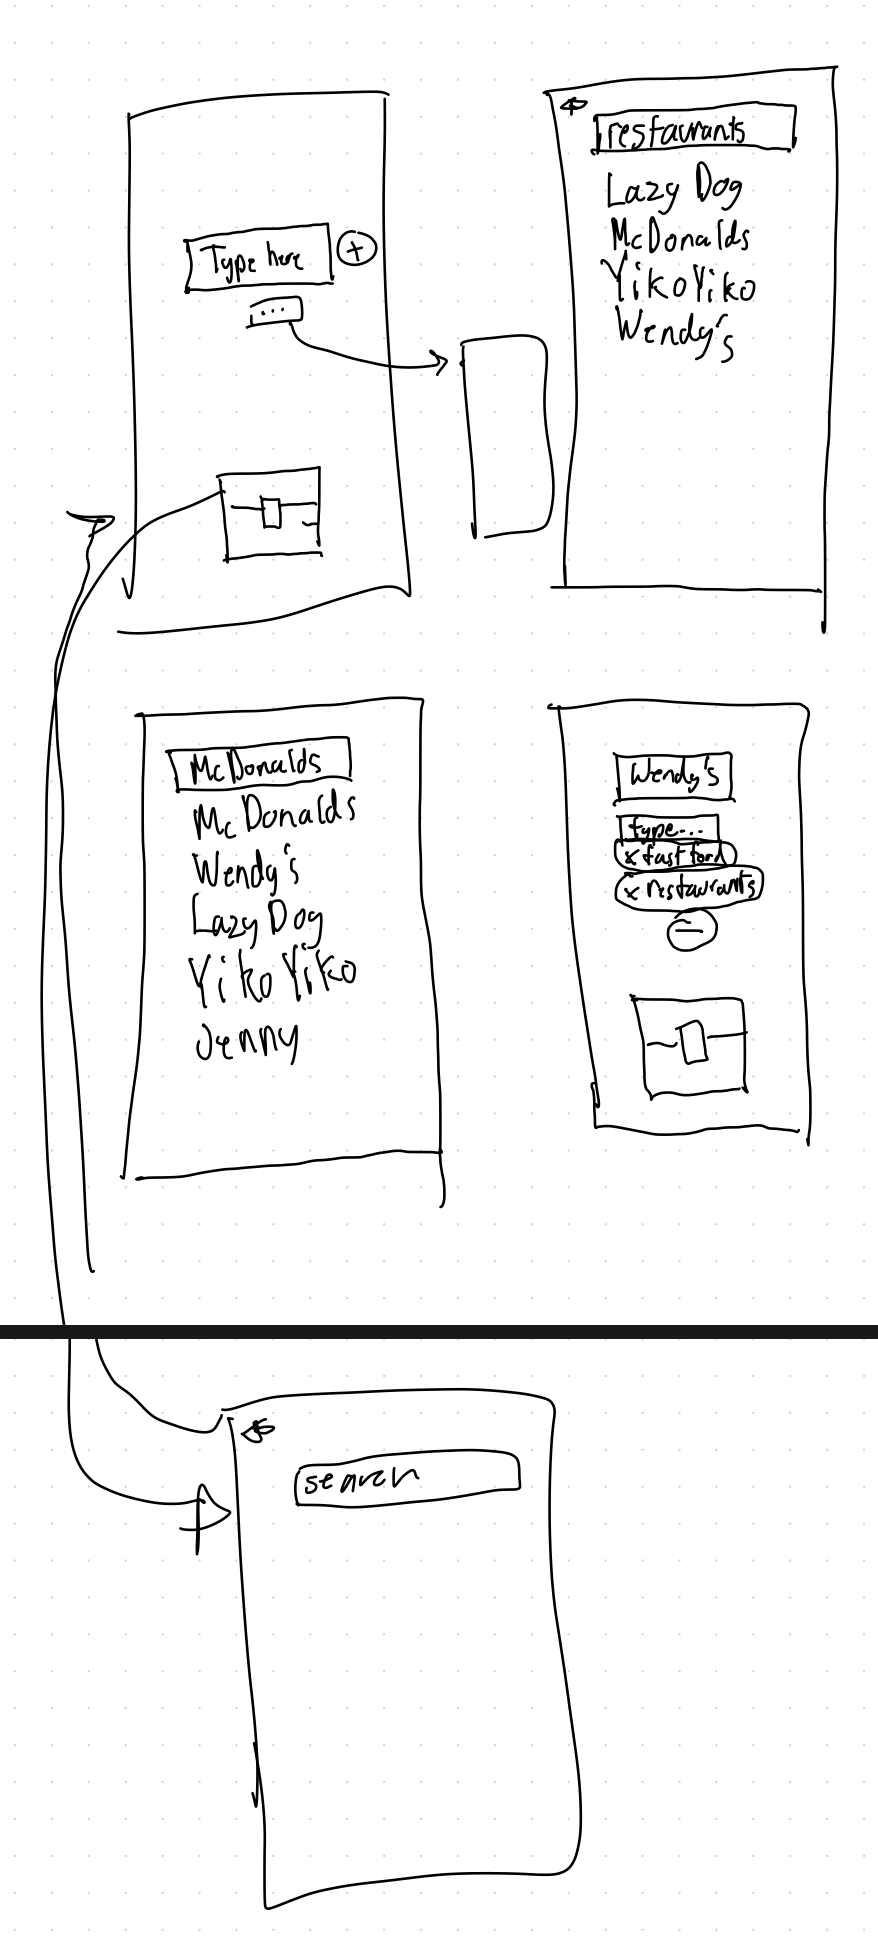 Type here
...
restaurants
Lazy Dog
McDonalds
YikoYiko
Wendy's
McDonalds
McDonalds
Wendy's
Lazy Dog
Yiko Yiko
Jenny
Wendy's
type...
x fast food
x restaurants
search